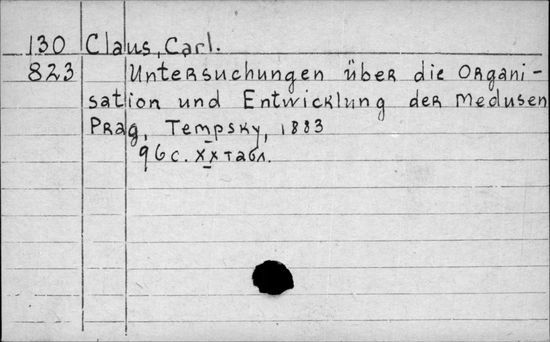 130 Claus, Carl.
823 Untersuchungen über die Organi-
sation und Entwicklung der Medusen
Prag, Tempsky, 1883
96 с. XX табл.